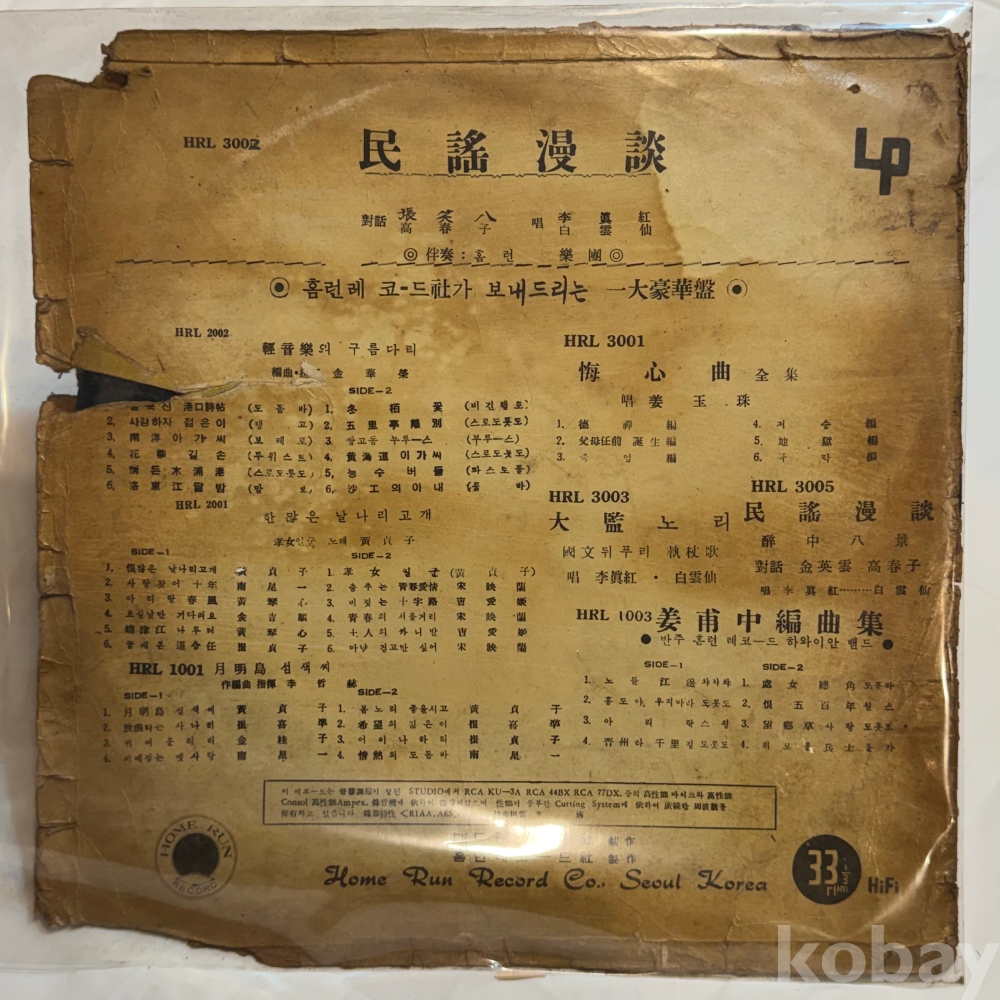 HRL 3002
民謠漫談
LP
對話 張笑八 唱 李眞紅
高春子 白雲仙
◎伴奏: 홈런 樂團◎
◉ 홈런레 코-드社가 보내드리는 一大豪華盤 ◉
HRL 2002
輕音樂의 구름다리
編曲 金華榮
SIDE-2
港口詩帖 (도돔바)
2. 사랑하자 젊은이 (탱고)
3. 南洋아가씨 (보레로)
4. 길손 (투위스트)
5. 木浦港 (스로도롯도)
6. 洛東江달밤 (맘보)
1. 冬栢꽃
2. 五里亭離別 (스로도롯도)
3. 쌍고동 누루-스 (부루-스)
4. 黄海道이가씨 (스로도롯도)
5. 능수버들 (파스토돌)
6. 沙工의아내
HRL 2001
한많은 날나리고개
孝女일군 노래 黃貞子
SIDE-1
1. 恨많은 날나리고개 黃貞子
2. 사랑찾어十年 南星一
3. 아리랑春風 黃琴心
4. 오실날만 기다려요
5. 蟾津江 나루터 黃琴心
6.
SIDE-2
1. 孝女일군 (黃貞子)
2. 춤추는 靑春愛情 宋映蘭
3. 비젓는 十字路 吉愛姬
4. 靑春의 서울거리 宋映蘭
5. 十人의 카니발 吉愛姬
6. 마냥 걷고만 싶어 宋映蘭
HRL 1001 月明島 섬색씨
作編曲 指揮 李哲
SIDE-1
1. 月明島 섬색씨 黃貞子
2. 사나히 崔喜準
3. 金桂子
4. 옛사랑 南星一
SIDE-2
1. 봄노리 좋을시고 黃貞子
2. 希望의 길은이 崔喜準
3. 어이나하리 崔貞子
4. 情熱의 도돔바 南星一
HRL 3001
悔心曲 全集
唱 姜玉珠
1. 德禪編
2. 父母任前 誕生編
3. 죽엄編
4. 저승編
5. 地獄編
6. 극락編
HRL 3003
大監노리
國文뒤푸리 執杖歌
唱 李眞紅・白雲仙
HRL 3005
民謠漫談
醉中八景
對話 金英雲 高春子
唱 李眞紅………白雲仙
HRL 1003 姜甫中編曲集
● 반주 홈런 레코-드 하와이안 밴드 ●
SIDE-1
1. 노들江邊차차차
2. 홍도야, 우지마라 도롯도
3. 아리랑스윙
4. 晋州라 千里길도롯도
SIDE-2
1. 處女總角도돔바
2. 恨五百年왈스
3. 望鄕草사랑도롯도
4.
이 레코-드는 音響調節이 잘된 STUDIO에서 RCA KU-3A RCA 44BX RCA 77DX. 등의 高性能 마이크와 高性能
Consol 高性能Ampex. 錄音機에 依하여 性能이 풍부한 Cutting System에 依하여 廣範한 周波數를
保有하고 있읍니다. 錄音特性 <RIAA, AES.
製作
홈 드社 製作
Home Run Record Co., Seoul Korea
HOME RUN
RECORD
33
HiFi
kobay